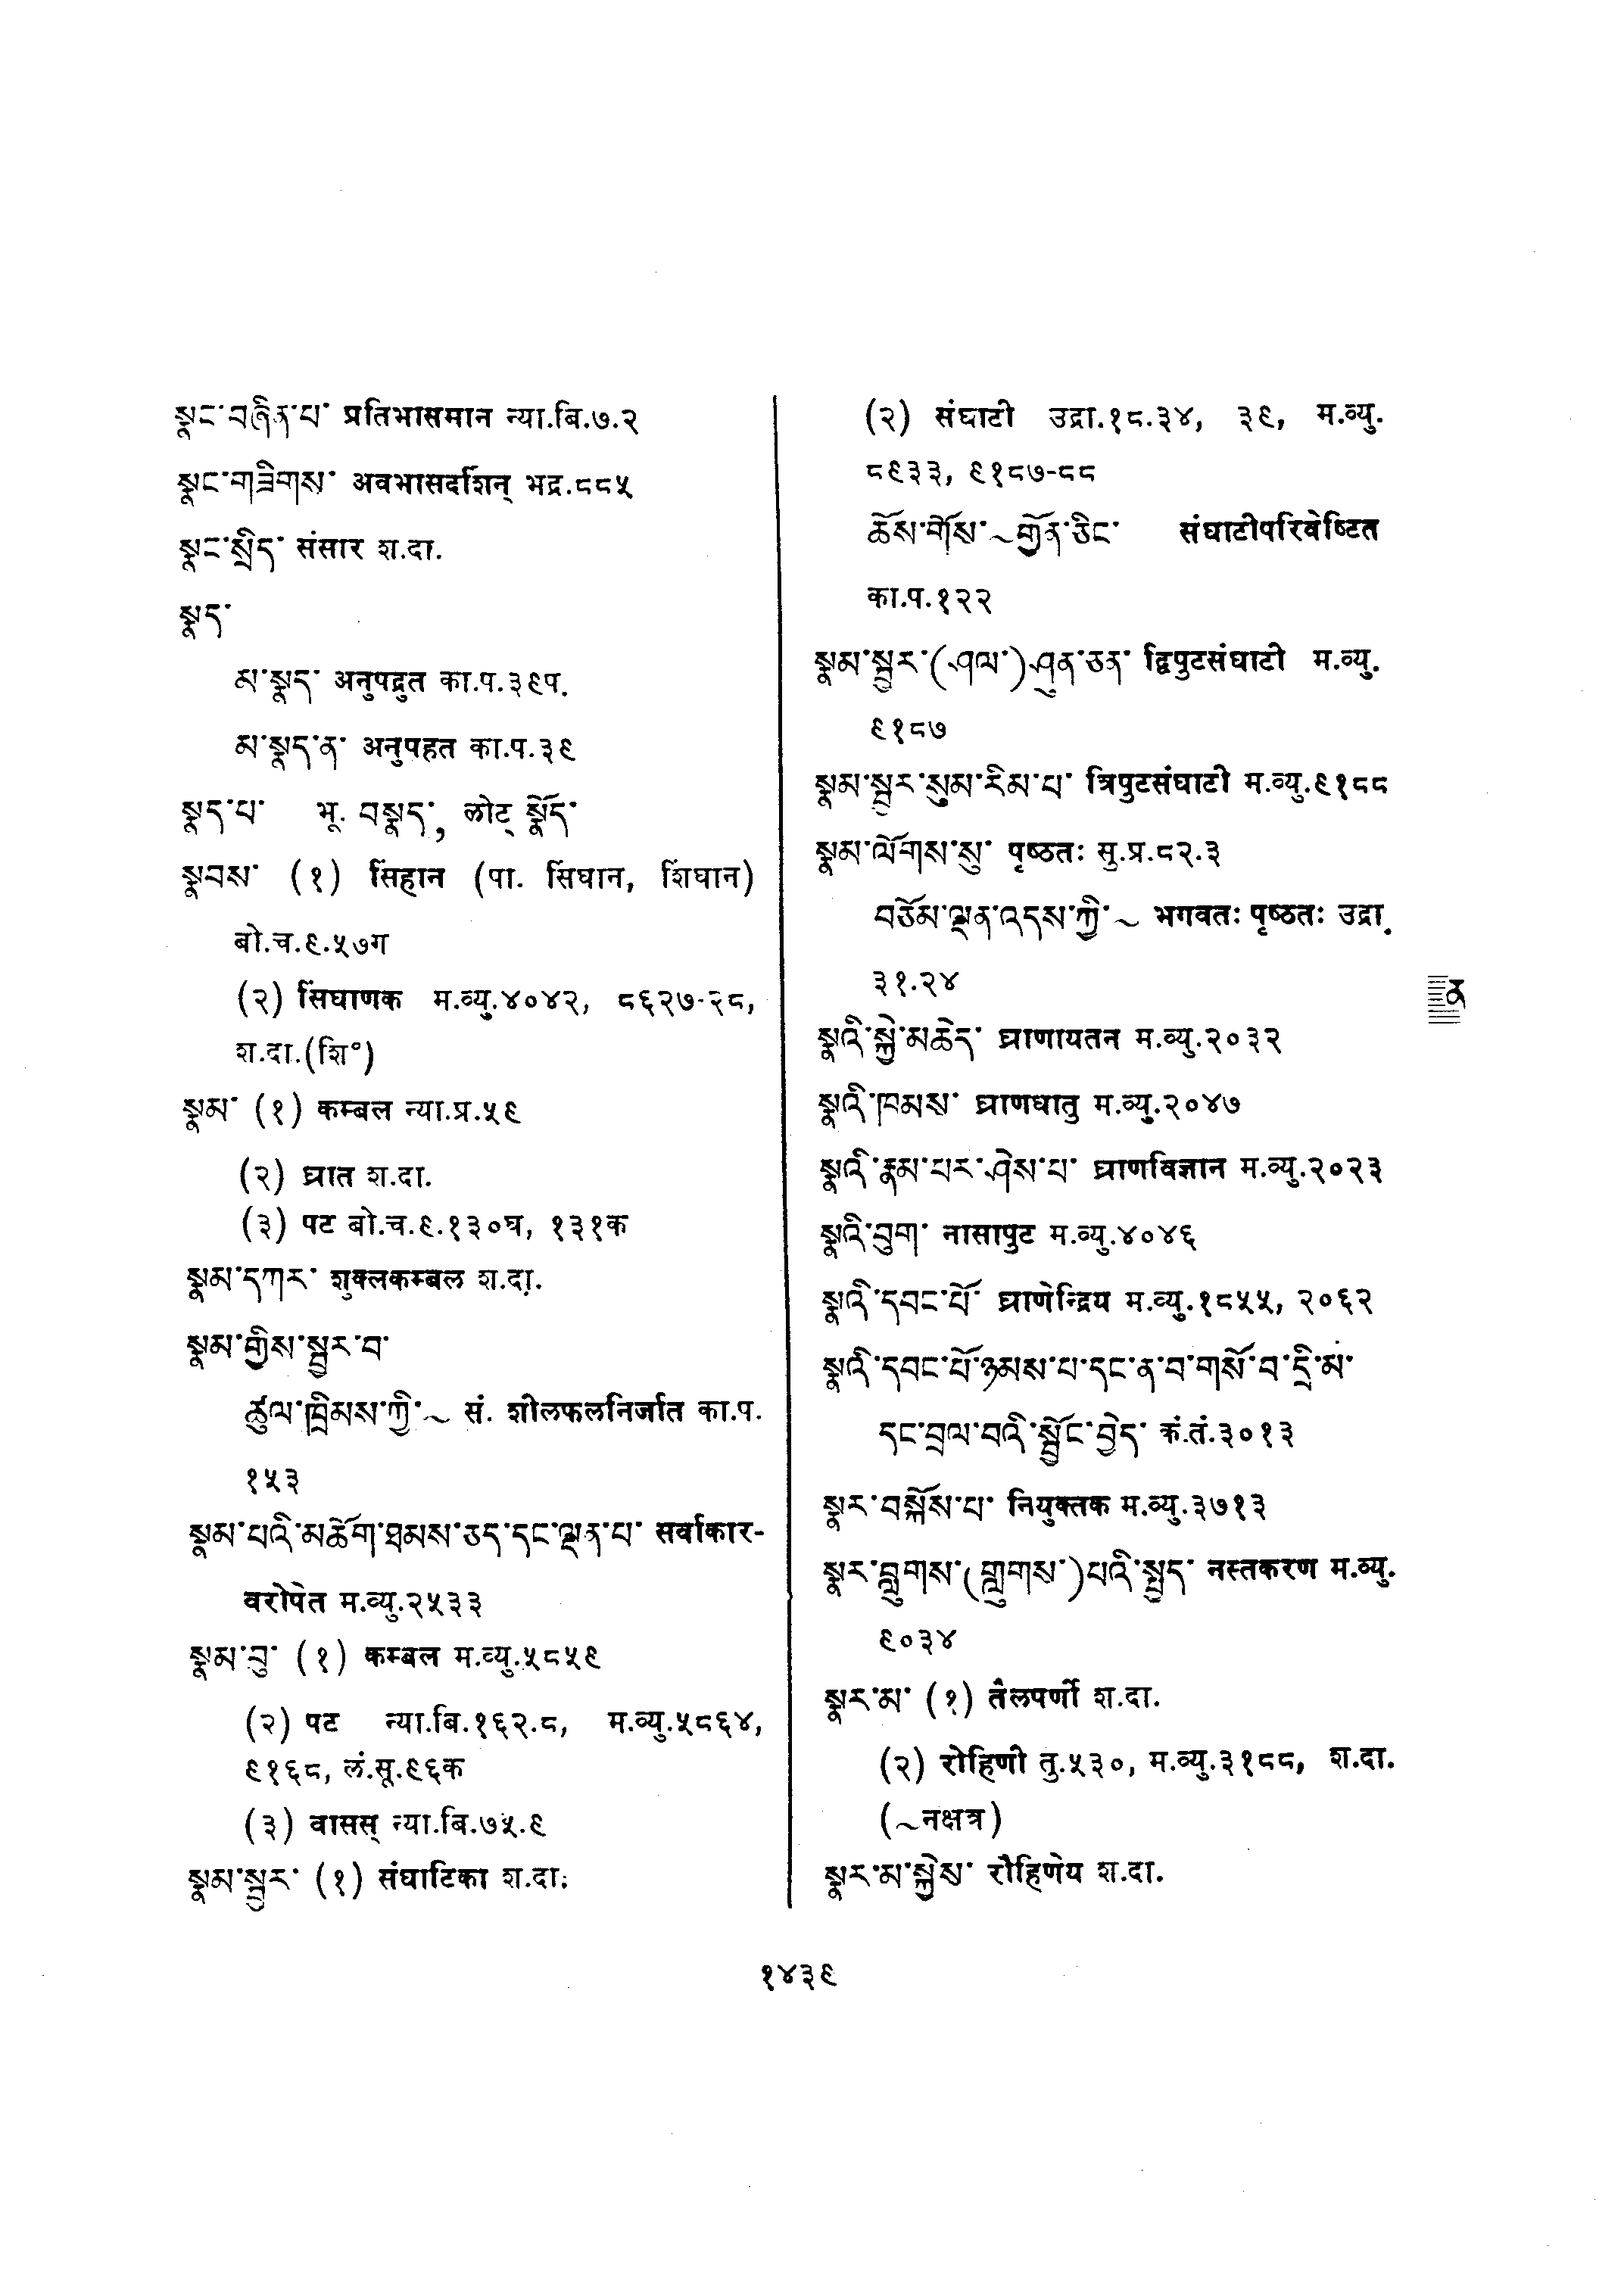 སྣང་བཞིན་པ་ प्रतिभासमान न्या.बि.७.२
སྣང་གཟིགས་ अवभासदर्शिन् भद्र.८८५
སྣང་སྲིད་ संसार श.दा.
སྣད་
མ་སྣད་ अनुपद्रुत का.प.३९प.
མ་སྣད་ན་ अनुपहत का.प.३९
སྣད་པ་ भू. བསྣད་, लोट् སྣོད་
སྣབས་ (१) सिंहान (पा. सिंघान, शिंघान)
बो.च.९.५७ग
(२) सिंघाणक म.व्यु.४०४२, ८६२७-२८,
श.दा.(शि॰)
སྣམ་ (१) कम्बल न्या.प्र.५९
(२) घ्रात श.दा.
(३) पट बो.च.९.१३०घ, १३१क
སྣམ་དཀར་ शुक्लकम्बल श.दा.
སྣམ་གྱིས་སྦྱར་བ་
ཚུལ་ཁྲིམས་ཀྱི་~ सं. शीलफलनिर्जात का.प.
१५३
སྣམ་པའི་མཆོག་ཐམས་ཅད་དང་ལྡན་པ་ सर्वाकार-
वरोपेत म.व्यु.२५३३
སྣམ་བུ་ (१) कम्बल म.व्यु.५८५९
(२) पट न्या.बि.१६२.८, म.व्यु.५८६४,
९१६८, लं.सू.९६क
(३) वासस् न्या.बि.७५.९
སྣམ་སྦྱར་ (१) संघाटिका श.दा.
(२) संघाटी उद्रा.१८.३४, ३९, म.व्यु.
८९३३, ९१८७-८८
ཆོས་གོས་~གྱོན་ཅིང་ संघाटीपरिवेष्टित
का.प.१२२
སྣམ་སྦྱར་(ཤལ་)ཤུན་ཅན་ द्विपुटसंघाटी म.व्यु.
९१८७
སྣམ་སྦྱར་སུམ་རིམ་པ་ त्रिपुटसंघाटी म.व्यु.९१८८
སྣམ་ལོགས་སུ་ पृष्ठतः सु.प्र.८२.३
བཅོམ་ལྡན་འདས་ཀྱི་~ भगवतः पृष्ठतः उद्रा.
३१.२४
ན
སྣའི་སྐྱེ་མཆེད་ घ्राणायतन म.व्यु.२०३२
སྣའི་ཁམས་ घ्राणधातु म.व्यु.२०४७
སྣའི་རྣམ་པར་ཤེས་པ་ घ्राणविज्ञान म.व्यु.२०२३
སྣའི་བུག་ नासापुट म.व्यु.४०४६
སྣའི་དབང་པོ་ घ्राणेन्द्रिय म.व्यु.१८५५, २०६२
སྣའི་དབང་པོ་ཉམས་པ་དང་ན་བ་གསོ་བ་དྲི་མ་
དང་བྲལ་བའི་སྦྱོང་བྱེད་ कं.तं.३०१३
སྣར་བསྐོས་པ་ नियुक्तक म.व्यु.३७१३
སྣར་བླུགས་(གླུགས་)པའི་སྤྱད་ नस्तकरण म.व्यु.
९०३४
སྣར་མ་ (१) तैलपर्णी श.दा.
(२) रोहिणी तु.५३०, म.व्यु.३१८८, श.दा.
(~नक्षत्र)
སྣར་མ་སྐྱེས་ रौहिणेय श.दा.
१४३९